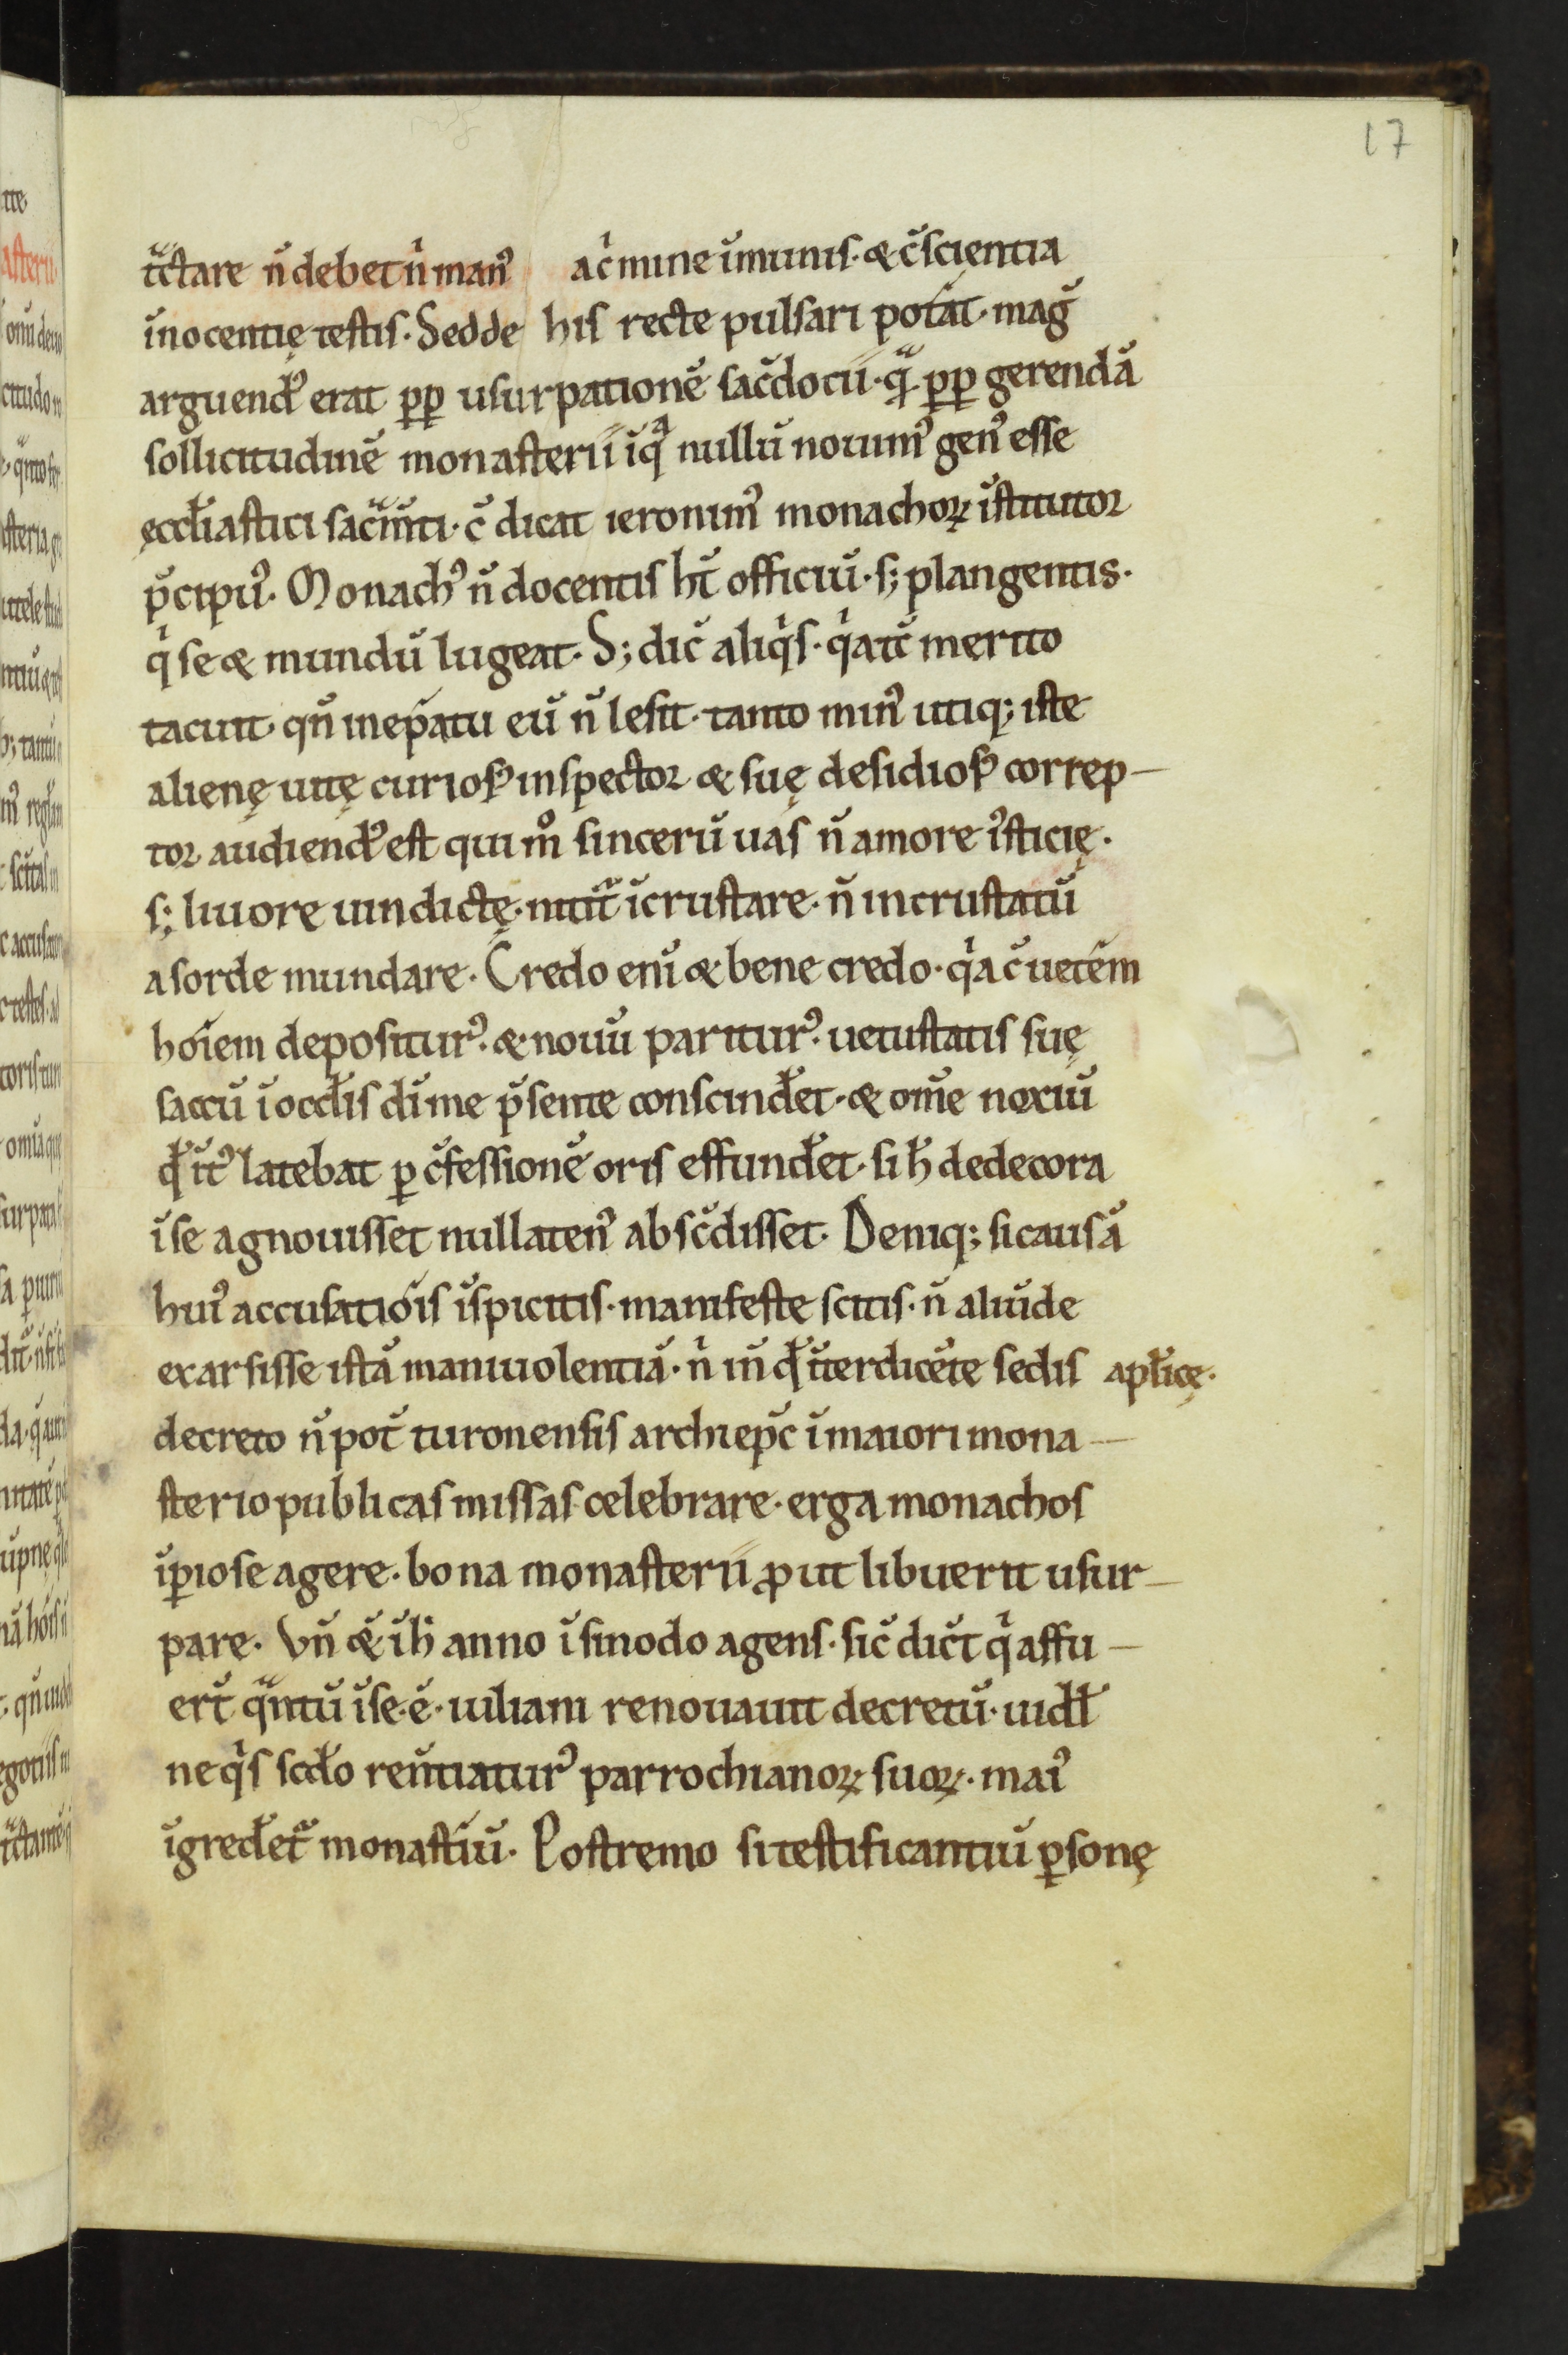 17
tͣctare n̄ debet nͥ man᷒ a cͥmine īmunis · & c̄scientia
īnocentię testis · Sed de his recte pulsari potͣat · maḡ
arguend᷒ erat ꝑꝑ usurpationē sac̄docii · qͣ ꝑꝑ gerendā
sollicitudinē monasterii ī qͣ nullū nouim᷒ gen᷒ esse
ęccłiastici sac̄mͣti · c̄ dicat ieronim᷒ monachoꝝ īstitutor
p̄cipu᷒ · Monach᷒ n̄ docentis ht̄ officiū · s; plangentis ·
qͥ se & mundū lugeat · S; dic̄ aliqͥs · qͥa tc̄ merito
tacuit · qn̄ in ep̄atu eū n̄ lesit · tanto min᷒ utiq; iste
alienę uitę curios᷒ inspector & suę desidios᷒ correp-
tor audiend᷒ est qui mͦ sincerū uas n̄ amore i᷒sticię ·
s; liuore uindictę · nitit᷑ īcrustare · n̄ incrustatū
a sorde mundare · Credo enī & bene credo · qͥa c̄ uetēm
hoīem depositur᷒ · & nouū paritur᷒ · uetustatis suę
saccū ī occłis dī me p̄sente conscindēt · & om̄e noxiū
qd̄ īt᷒ latebat ꝑ c̄fessionē oris effundēt · si h̄ dedecora
ī se agnouisset nullaten᷒ absc̄disset · Deniq; si causā
hui᷒ accusatiōis īspicitis · manifeste scitis · n̄ aliūde
exarsisse istā maniuolentiā · nͥ in̄ qd̄ īterdicēte sedis apłicę ·
decreto n̄ pot̄ turonensis archiep̄c ī maiori mona-
sterio publicas missas celebrare · erga monachos
īꝑiose agere · bona monasterii ꝓut libuerit usur-
pare · Vn̄ & ī h̄ anno ī sinodo agens · sic̄ dict̄ qͥ affu-
ert̄ qͣntū ī se · ē · uiliam renouauit decretū · uidł
ne qͥs scd̄o ren̄tiatur᷒ parrochianoꝝ suoꝝ · mai᷒
īgredēt᷑ monast̄iū · Postremo si testificantiū ꝑsonę